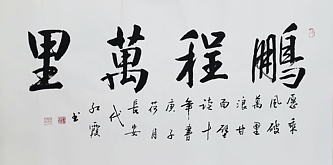 鹏程萬里
愿乘
風破
萬里
浪甘
面壁
读十
年書
庚子
荷月
長安
代
红霞
书